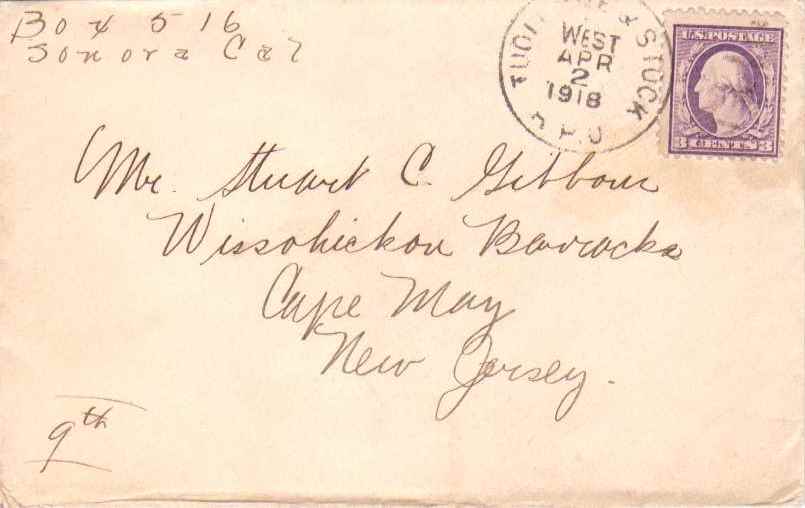 Box 516
Sonora Cal
TUOLUMNE & STOCK
WEST
APR
2
1918
R.P.O
U.S. POSTAGE
3 CENTS 3
Mr. Stuart C. Gibboney
Wissahickon Barracks
Cape May
New Jersey.
9th